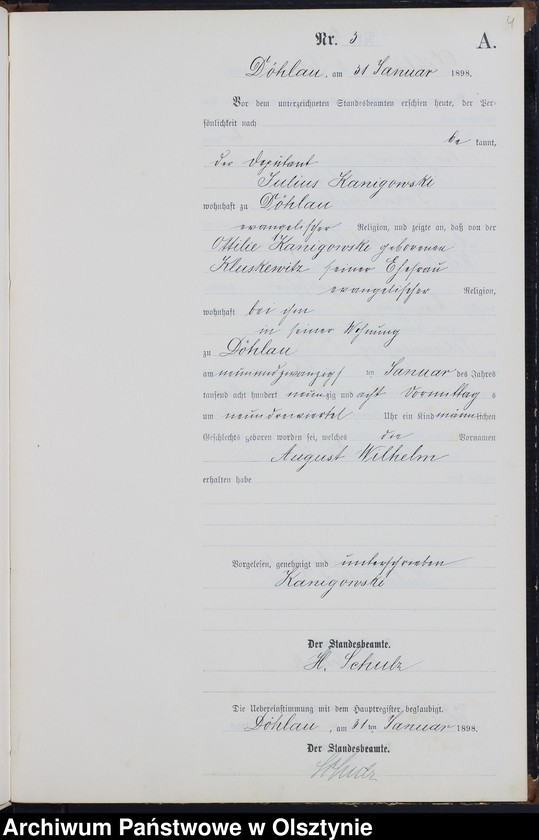 4
Nr. 3
A.
Döhlau, am 31 Januar 1898.
Vor dem unterzeichneten Standesbeamten erschien heute, der Per-
sönlichkeit nach
be kannt,
der Deputant
Julius Kanigowski
wohnhaft zu Döhlau
evangelischer Religion, und zeigte an, daß von der
Ottilie Kanigowski geborenen
Kluskewitz seiner Ehefrau
evangelischer Religion,
wohnhaft bei ihm
in seiner Wohnung
zu Döhlau
am neunundzwanzigsten Januar des Jahres
tausend acht hundert neunzig und acht Vormittags
um neundreiviertel Uhr ein Kind männlichen
Geschlechts geboren worden sei, welches die Vornamen
August Wilhelm
erhalten habe
Vorgelesen, genehmigt und unterschrieben
Kanigowski
Der Standesbeamte.
H. Schulz
Die Uebereinstimmung mit dem Hauptregister beglaubigt.
Döhlau, am 31ten Januar 1898.
Der Standesbeamte.
Schulz
Archiwum Państwowe w Olsztynie